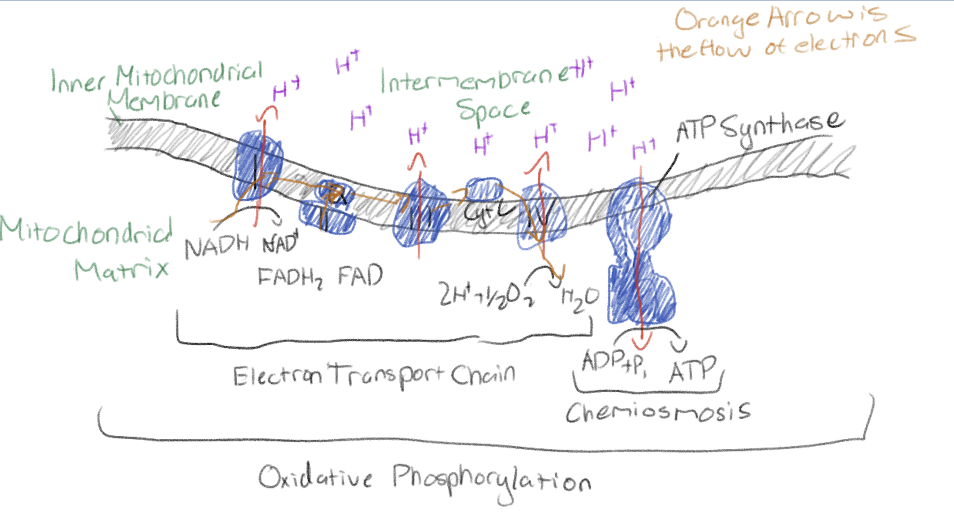 Orange Arrow is
the flow of electrons
Inner Mitochondrial
Membrane
H⁺
H⁺
H⁺
Intermembrane
Space
H⁺
H⁺
H⁺
H⁺
H⁺
H⁺
H⁺
ATP Synthase
I
Q
II
III
Cyt C
IV
Mitochondrial
Matrix
NADH NAD⁺
FADH₂ FAD
2H⁺+1/2O₂
H₂O
ADP+Pᵢ ATP
Electron Transport Chain
Chemiosmosis
Oxidative Phosphorylation